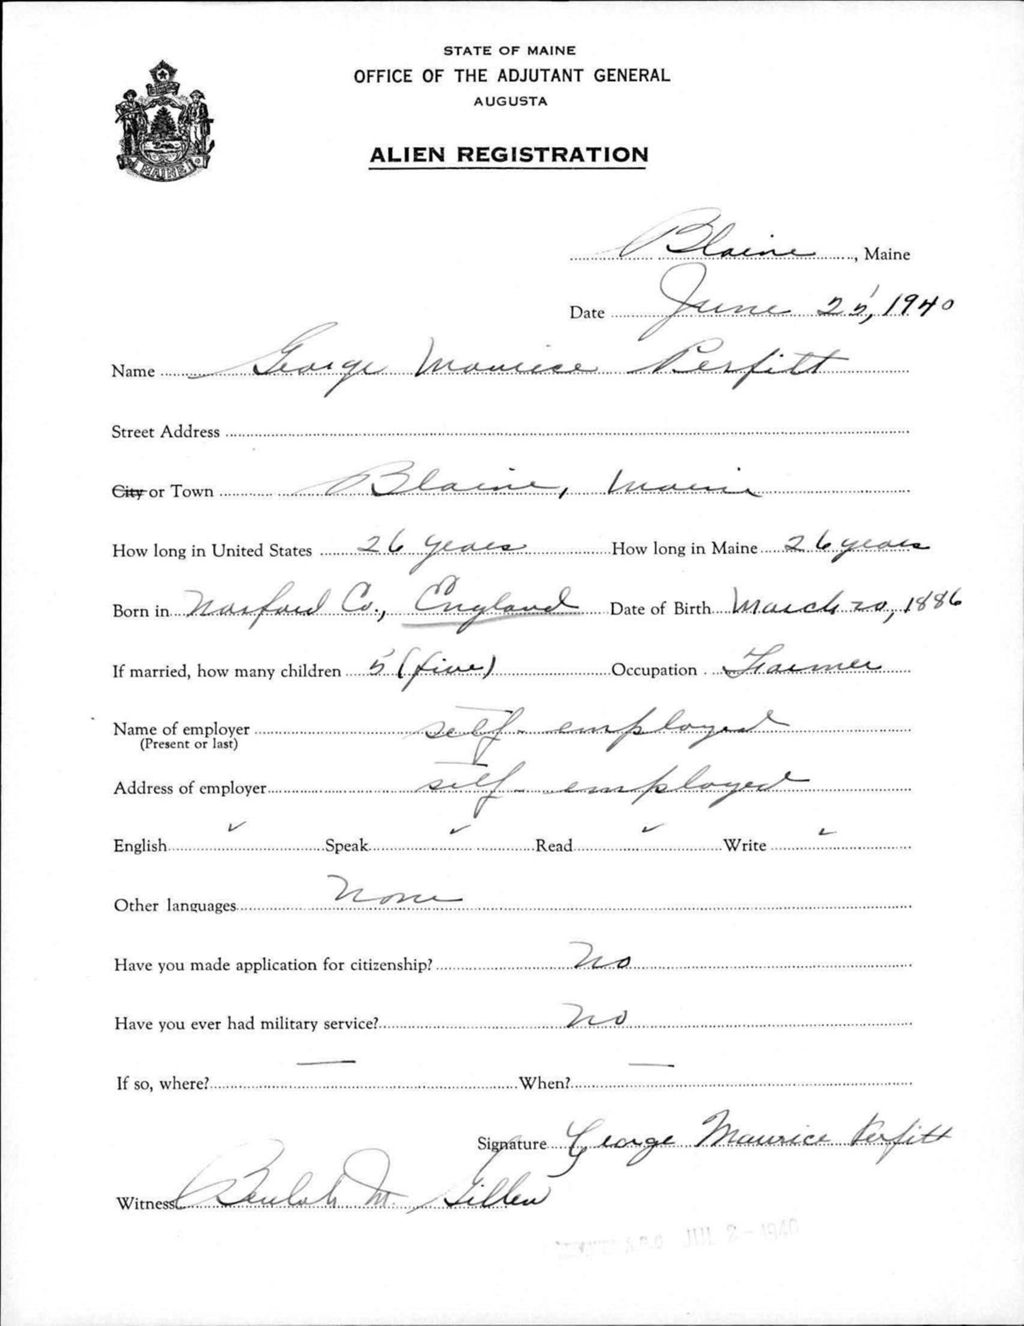 STATE OF MAINE
OFFICE OF THE ADJUTANT GENERAL
AUGUSTA
ALIEN REGISTRATION
MAINE
Blaine, Maine
Date June 25, 1940
Name George Maurice Perfitt
Street Address
City or Town Blaine, Maine
How long in United States 26 years How long in Maine 26 years
Born in Norford Co., England Date of Birth March 20, 1886
If married, how many children 5 (five) Occupation Farmer
Name of employer self-employed
(Present or last)
Address of employer self-employed
English ✓ Speak ✓ Read ✓ Write ✓
Other languages None
Have you made application for citizenship? No
Have you ever had military service? No
If so, where? — When? —
Signature George Maurice Perfitt
Witness Beulah M. Gillen
A.G.O. JUL 2 - 1940